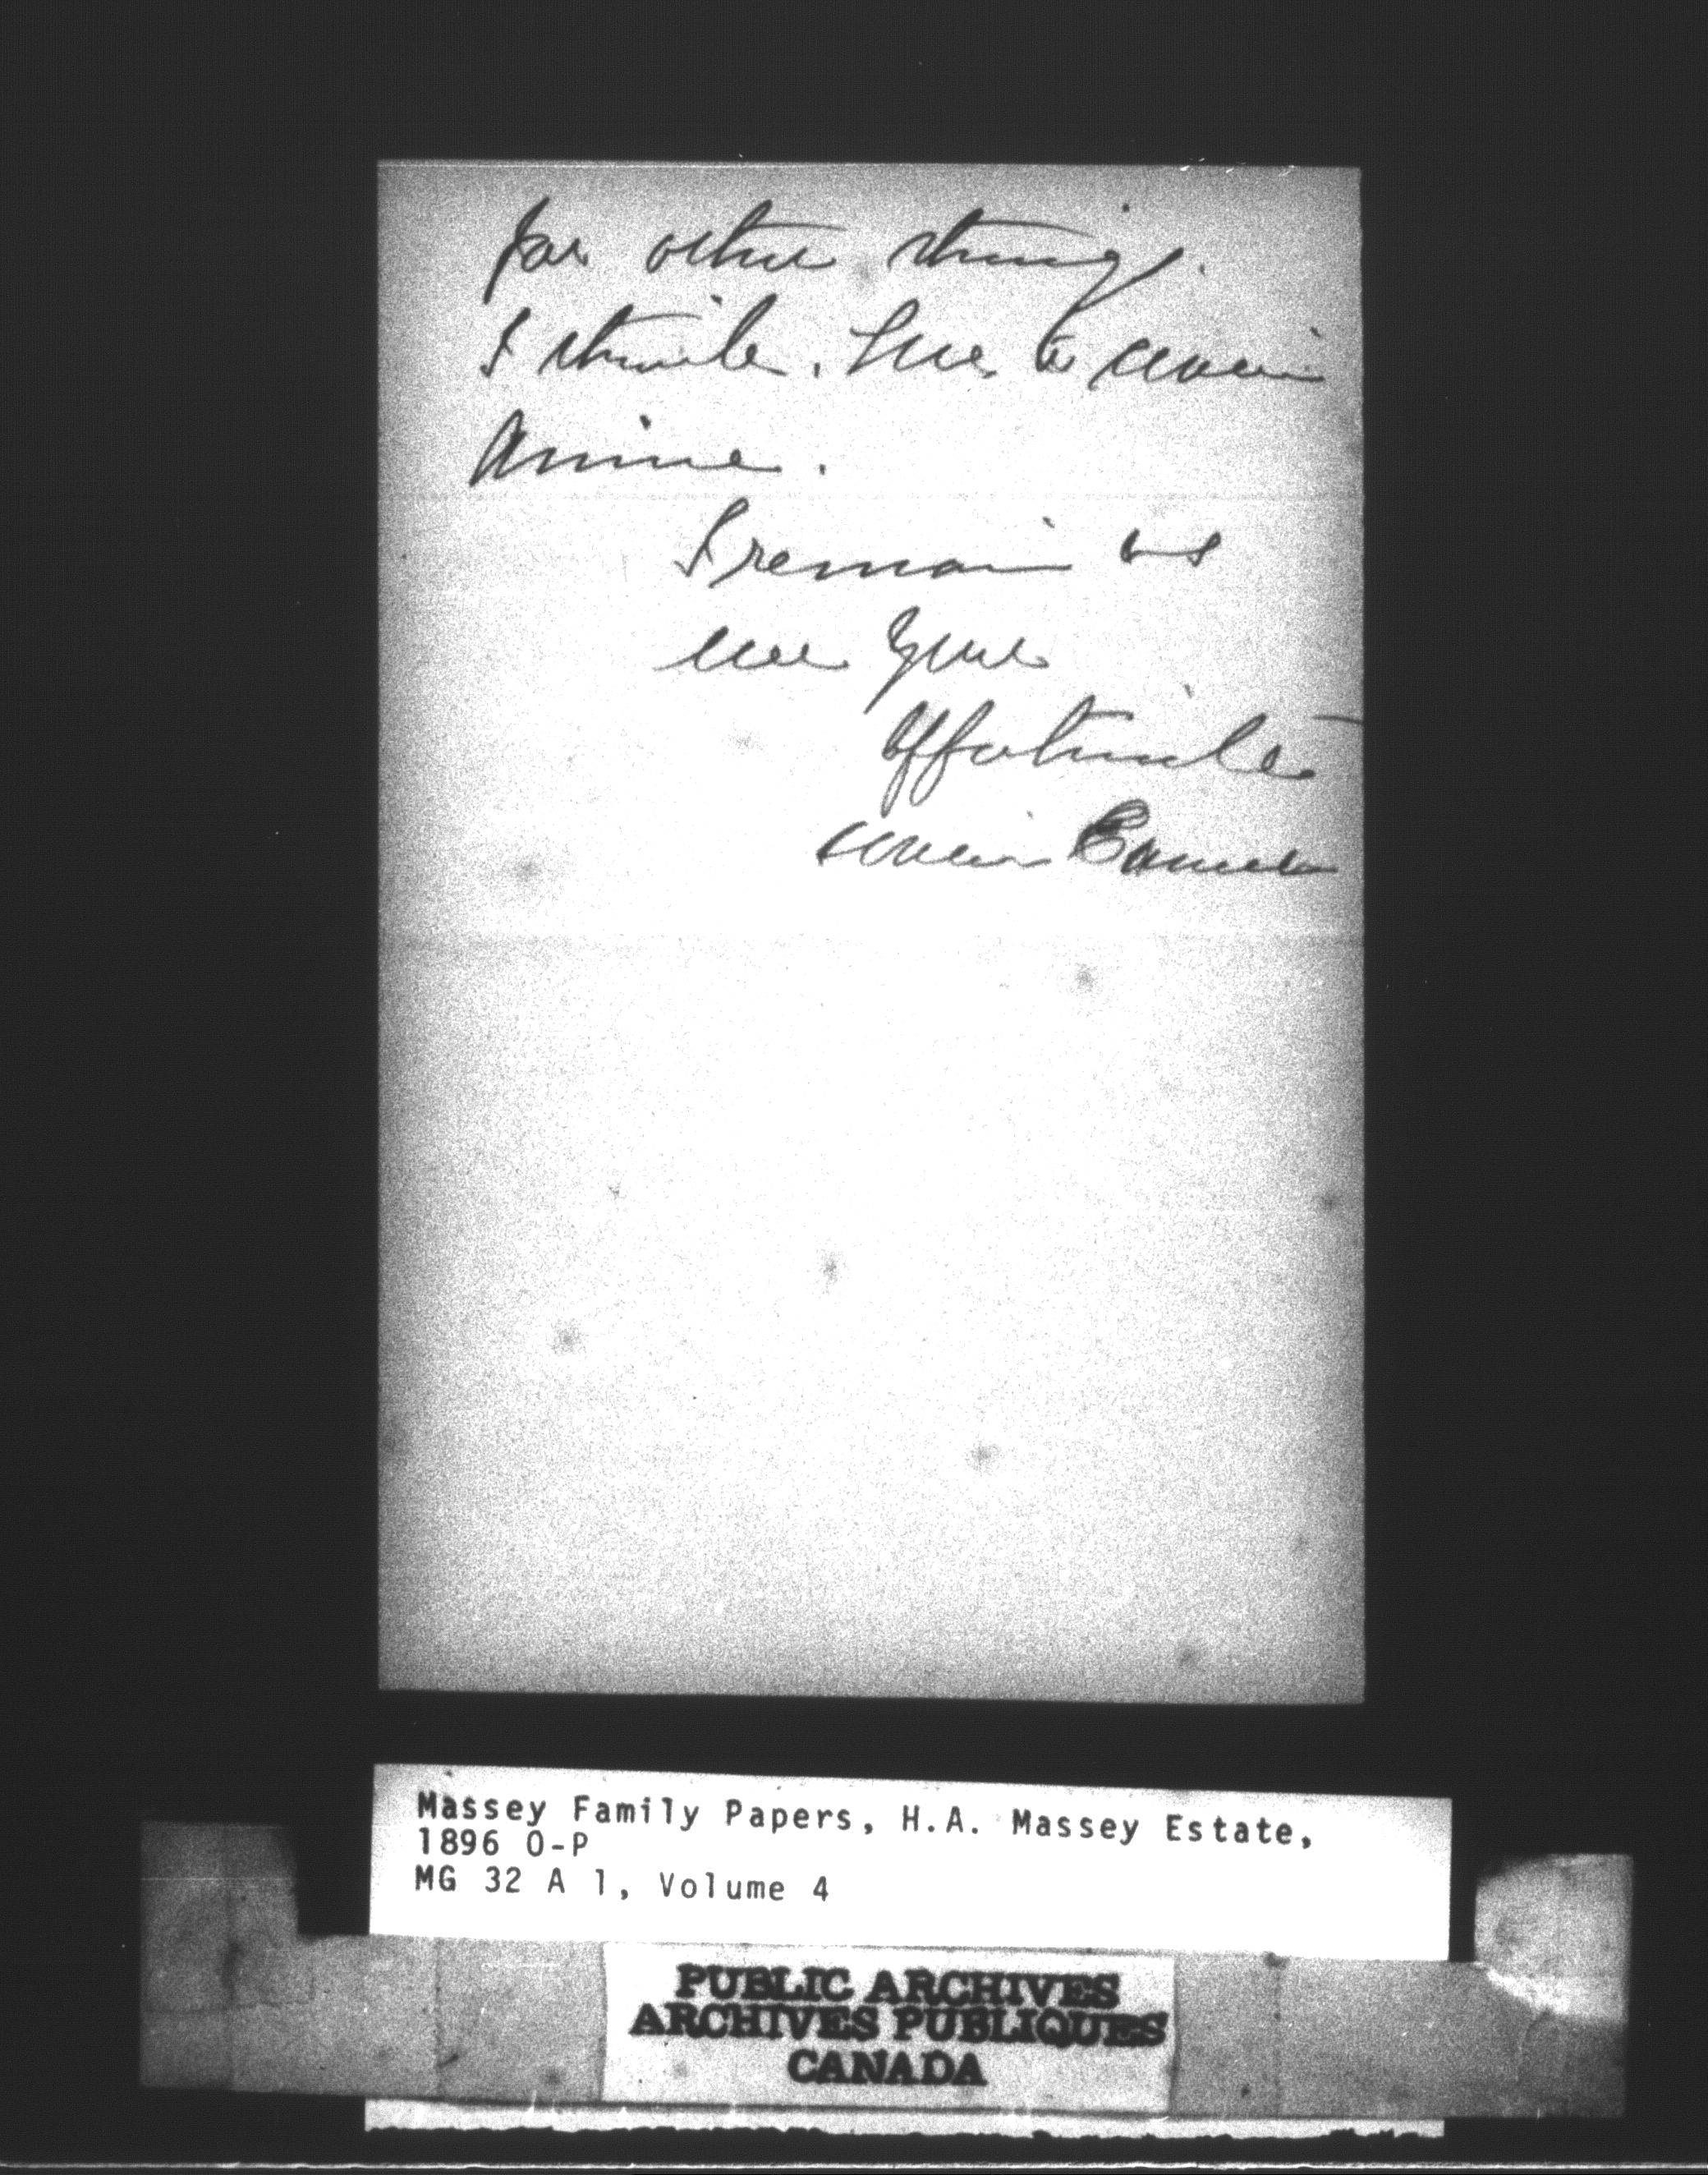 for other things.
I write. Love to cousin
Annie.
I remain as
ever your
affectionate
cousin
Massey Family Papers, H.A. Massey Estate,
1896 O-P
MG 32 A 1, Volume 4
PUBLIC ARCHIVES
ARCHIVES PUBLIQUES
CANADA